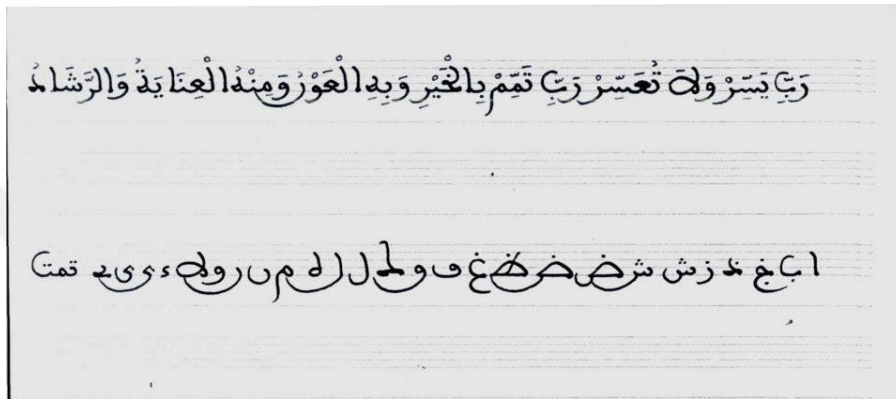 رَبِّ يَسِّرْ وَلَا تُعَسِّرْ رَبِّ تَمِّمْ بِالْخَيْرِ وَبِهِ الْعَوْنُ وَمِنْهُ الْعِنَايَةُ وَالرَّشَادُ
ا ب خ د ز ش ض ف و ل ل م ن و لا ء ى ے تمت